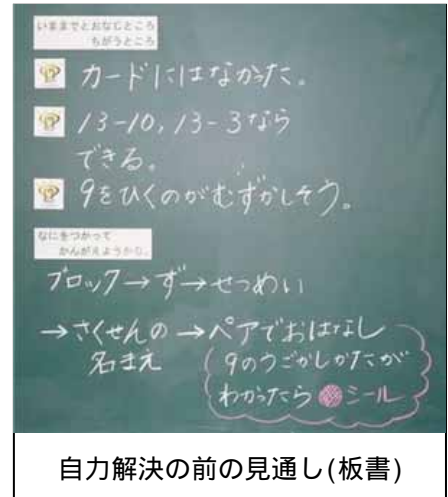 いままでとおなじところ
ちがうところ
カードにはなかった。
13-10,13-3なら
できる。
9をひくのがむずかしそう。
なにをつかって
かんがえようかな。
ブロック→ず→せつめい
→さくせんの→ペアでおはなし
名まえ
9のうごかしかたが
わかったらシール
自力解決の前の見通し(板書)